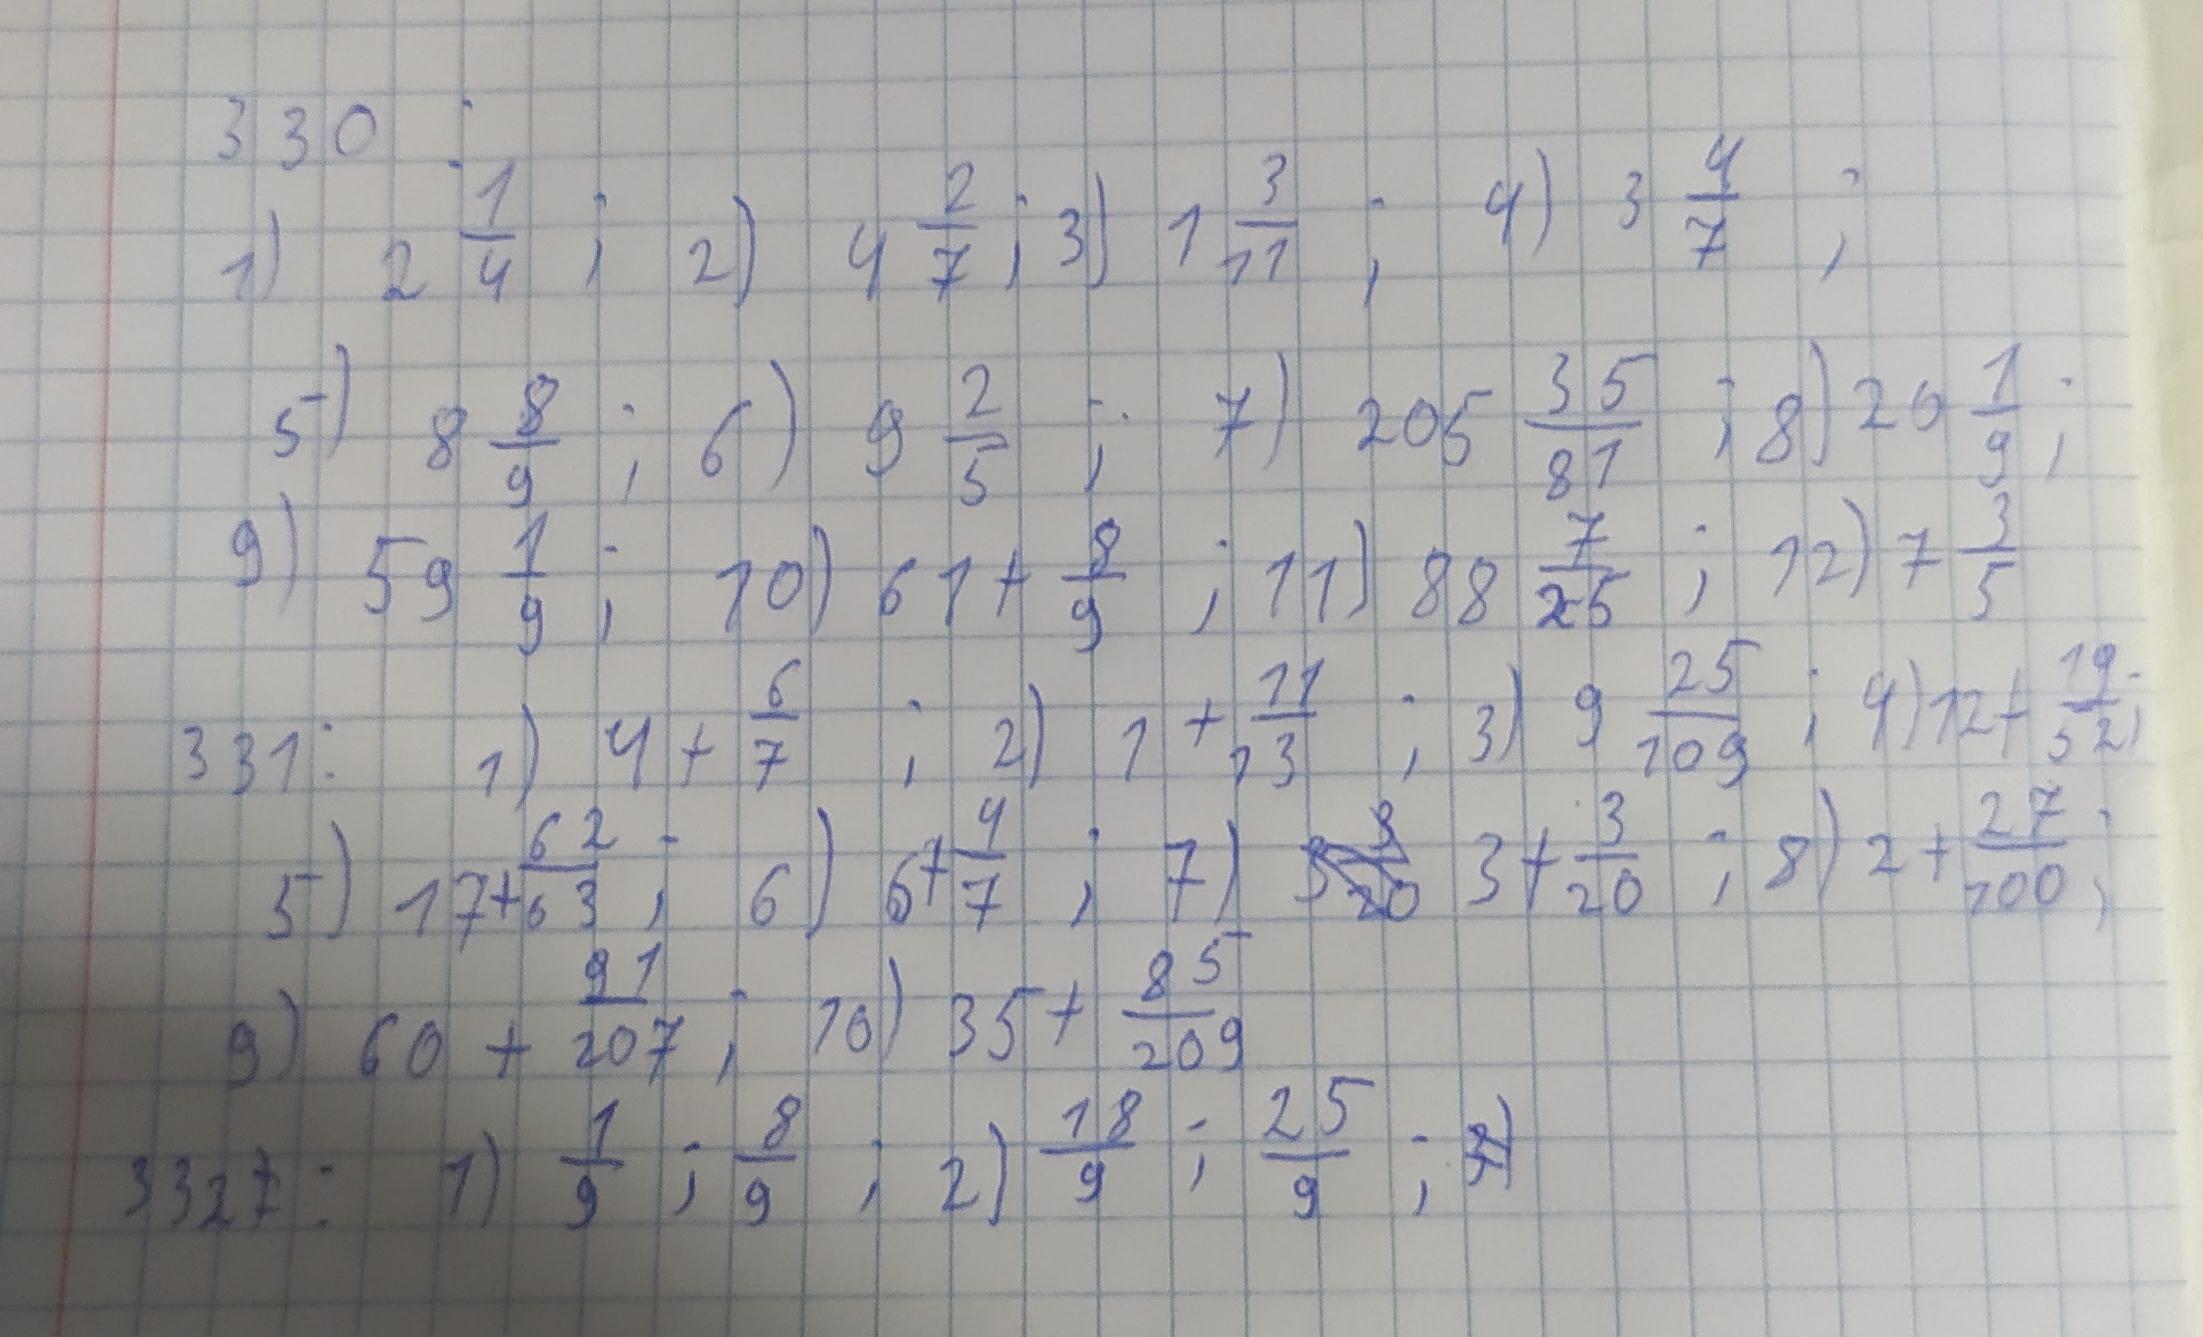 330 :
1) 2 1/4 ; 2) 4 2/7 ; 3) 1 3/11 ; 4) 3 4/7 ;
5) 8 8/9 ; 6) 9 2/5 ; 7) 205 35/81 ; 8) 20 1/9 ;
9) 59 1/9 ; 10) 61 + 8/9 ; 11) 88 7/25 ; 12) 7 3/5
331: 1) 4 + 6/7 ; 2) 1 + 11/13 ; 3) 9 25/109 ; 4) 12 + 19/52 ;
5) 17 + 62/63 ; 6) 6 + 4/7 ; 7) 3 + 3/20 ; 8) 2 + 27/100 ;
9) 60 + 91/207 ; 10) 35 + 85/209
332 : 1) 1/9 ; 8/9 ; 2) 18/9 ; 25/9 ;